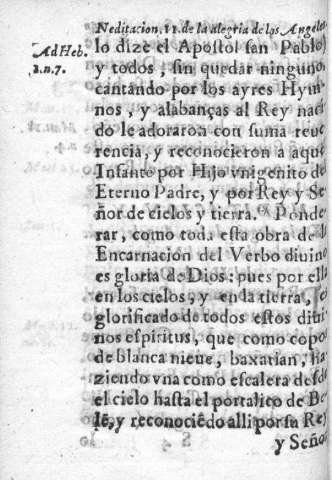 Neditacion, 11. de la alegria de los Angeles
Ad Heb.
1.n.7.
lo dize el Apostol san Pablo,
y todos, sin quedar ninguno
cantando por los ayres Hym
nos, y alabanças al Rey naci
do le adoraron con suma reue
rencia, y reconocieron a aquel
Infante por Hijo vnigenito de
Eterno Padre, y por Rey y Se
ñor de cielos y tierra. Ponde
rar, como toda esta obra de
Encarnacion del Verbo diuino
es gloria de Dios: pues por ell
en los cielos, y en la tierra,
glorificado de todos estos diui
nos espiritus, que como copo
de blanca nieue, baxarian, ha
ziendo vna como escalera desde
el cielo hasta el portalico de Be
lẽ, y reconociẽdo alli por su Rey
y Seño